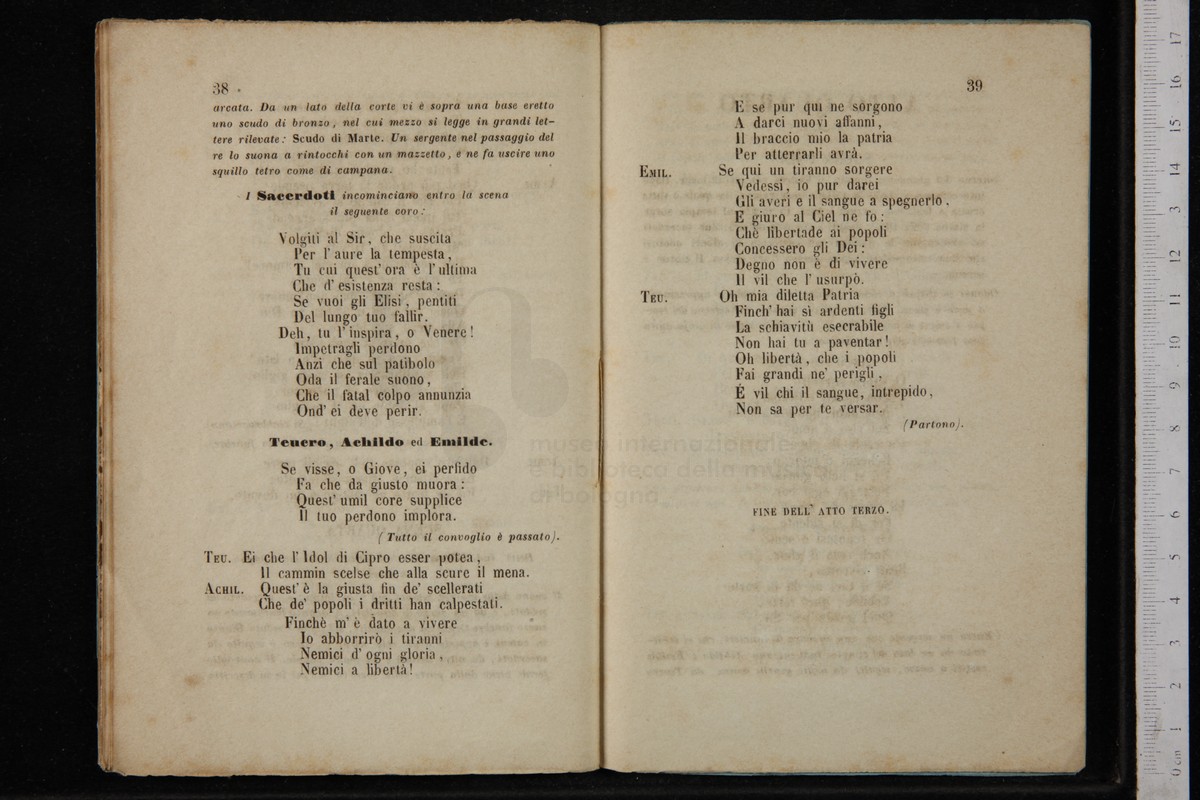 38
arcata. Da un lato della corte vi è sopra una base eretto
uno scudo di bronzo, nel cui mezzo si legge in grandi let-
tere rilevate: Scudo di Marte. Un sergente nel passaggio del
re lo suona a rintocchi con un mazzetto, e ne fa uscire uno
squillo tetro come di campana.
I Sacerdoti incominciano entro la scena
il seguente coro:
Volgiti al Sir, che suscita
Per l'aure la tempesta,
Tu cui quest'ora è l'ultima
Che d'esistenza resta:
Se vuoi gli Elisi, pentiti
Del lungo tuo fallir.
Deh, tu l'inspira, o Venere!
Impetragli perdono
Anzi che sul patibolo
Oda il ferale suono,
Che il fatal colpo annunzia
Ond'ei deve perir.
Teucro, Achildo ed Emilde.
Se visse, o Giove, ei perfido
Fa che da giusto muora:
Quest'umil core supplice
Il tuo perdono implora.
(Tutto il convoglio è passato).
TEU. Ei che l'Idol di Cipro esser potea,
Il cammin scelse che alla scure il mena.
ACHIL. Quest'è la giusta fin de' scellerati
Che de' popoli i dritti han calpestati.
Finchè m'è dato a vivere
Io abborrirò i tiranni
Nemici d'ogni gloria,
Nemici a libertà!
39
E se pur qui ne sorgono
A darci nuovi affanni,
Il braccio mio la patria
Per atterrarli avrà.
EMIL. Se qui un tiranno sorgere
Vedessi, io pur darei
Gli averi e il sangue a spegnerlo,
E giuro al Ciel ne fo:
Chè libertade ai popoli
Concessero gli Dei:
Degno non è di vivere
Il vil che l'usurpò.
TEU. Oh mia diletta Patria
Finch'hai sì ardenti figli
La schiavitù esecrabile
Non hai tu a paventar!
Oh libertà, che i popoli
Fai grandi ne' perigli,
È vil chi il sangue, intrepido,
Non sa per te versar.
(Partono).
FINE DELL'ATTO TERZO.
museo internazionale
e biblioteca della musica
di bologna
0 cm 1 2 3 4 5 6 7 8 9 10 11 12 13 14 15 16 17